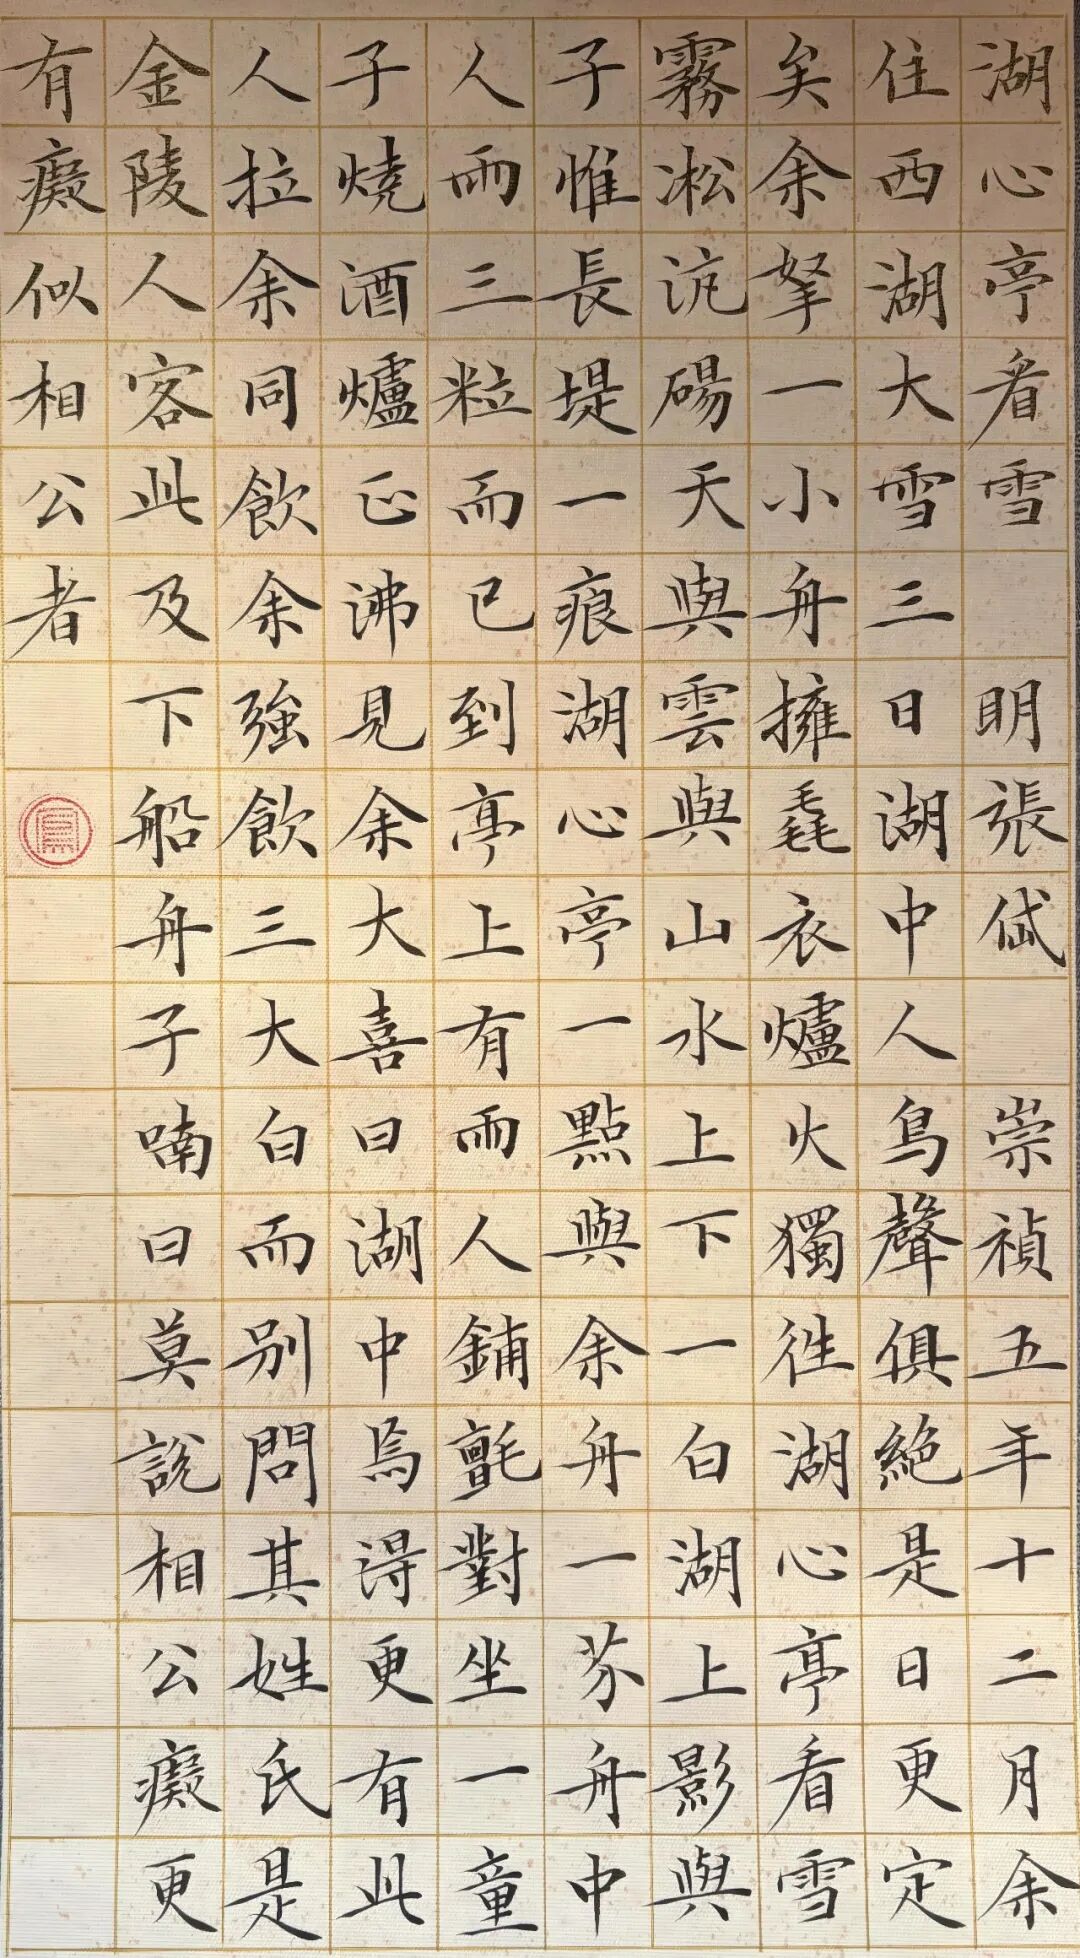 湖心亭看雪 明張岱 崇禎五年十二月余
住西湖大雪三日湖中人鳥聲俱絕是日更定
矣余拏一小舟擁毳衣爐火獨往湖心亭看雪
霧凇沆碭天與雲與山水上下一白湖上影與
子惟長堤一痕湖心亭一點與余舟一芥舟中
人両三粒而已到亭上有両人鋪氈對坐一童
子燒酒爐正沸見余大喜曰湖中焉得更有此
人拉余同飲余強飲三大白而別問其姓氏是
金陵人客此及下船舟子喃曰莫說相公癡更
有癡似相公者